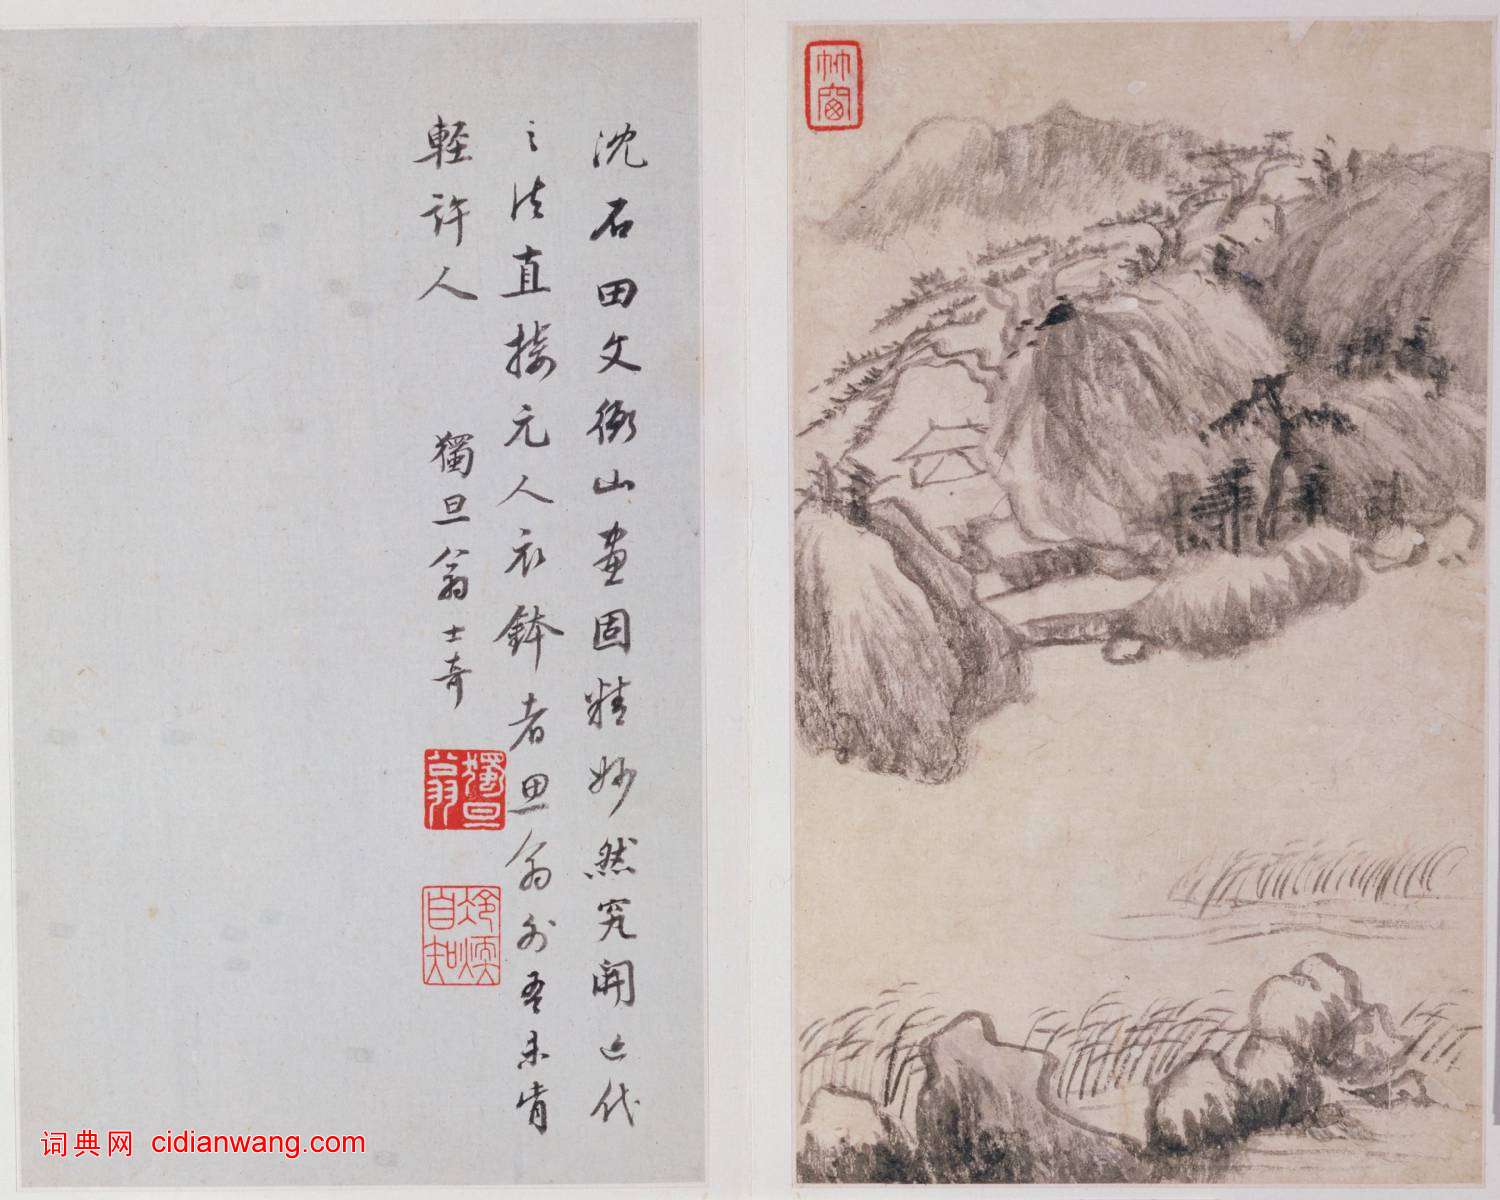 竹窗
沈石田文衡山畫固精妙然究開近代
之法直接元人衣鉢者思翁外吾未肯
輕許人 獨旦翁士奇
獨旦翁
冷煖自知
词典网 cidianwang.com